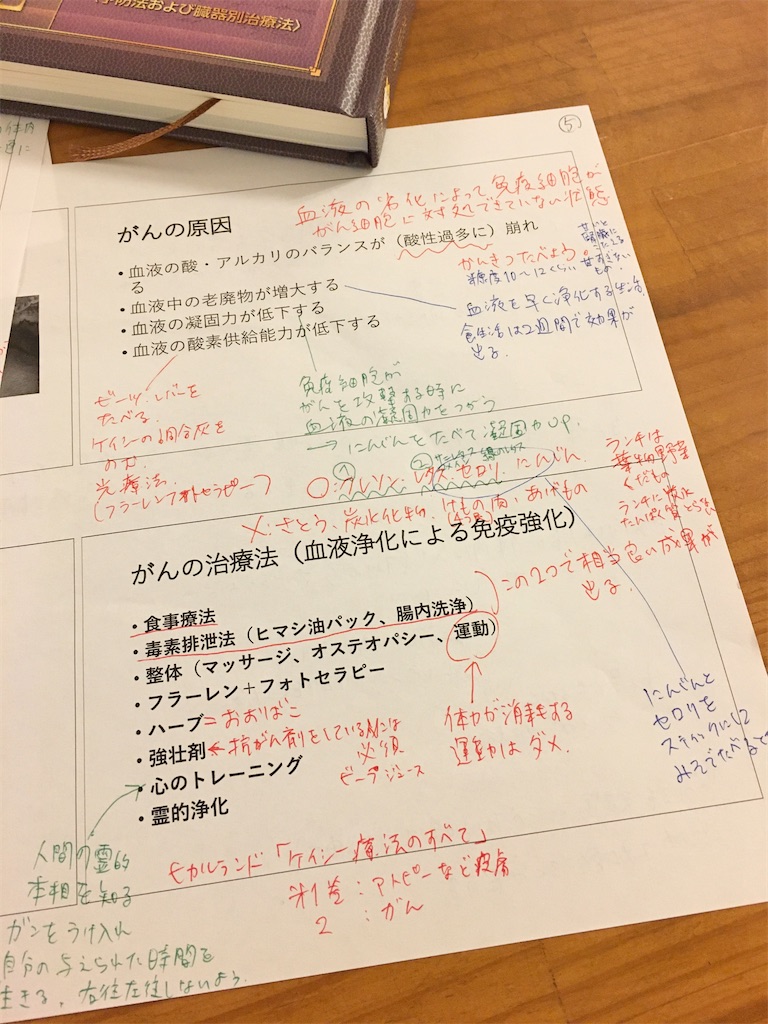 予防法および臓器別治療法〉
⑤
血液の劣化によって免疫細胞が
がん細胞に対処できていない状態
がんの原因
・血液の酸・アルカリのバランスが（酸性過多に）崩れ
る
・血液中の老廃物が増大する
・血液の凝固力が低下する
・血液の酸素供給能力が低下する
かんきつたべよう。
糖度10〜12くらい
甘すぎない
もの。
血液を早く浄化する生活。
食生活は2週間で効果が
出る。
ビーツ・レバーを
たべる。
ケイシーの調合灰を
のむ
光療法。
(フラーレンフォトセラピー)
免疫細胞が
がんを攻撃する時に
血液の凝固力をつかう
→にんじんをたべて凝固力UP。
① ②
○:クレソン・レタス・セロリ・にんじん。
×:さとう、炭水化物、けもの肉、あげもの
(4つ足)
ランチは
葉物野菜
くだもの
ランチに炭水
たんぱく質とらない
がんの治療法（血液浄化による免疫強化）
・食事療法
・毒素排泄法（ヒマシ油パック、腸内洗浄）
・整体（マッサージ、オステオパシー、運動）
・フラーレン＋フォトセラピー
・ハーブ=おおばこ
・強壮剤←抗がん剤をしている人には
必須
ビーフジュース
・心のトレーニング
・霊的浄化
この2つで相当良い成果が
出る。
体力が消耗する
運動はダメ。
にんじんと
セロリを
スティックにして
みそでたべると
人間の霊的
本性を知る
ガンをうけ入れ
自分の与えられた時間を
生きる。右往左往しないよう。
ヒカルランド「ケイシー療法のすべて」
第1巻:アトピーなど皮膚
2 :がん